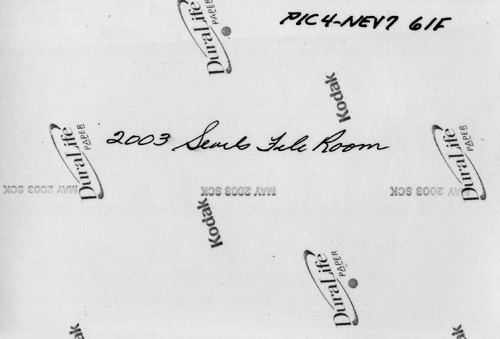 PIC4-NEV7 61F
DuraLife
PAPER
Kodak
2003 Searls File Room
DuraLife
PAPER
DuraLife
PAPER
MAY 2003 SCK
MAY 2003 SCK
MAY 2003 SCK
Kodak
DuraLife
PAPER
Kodak
Kodak